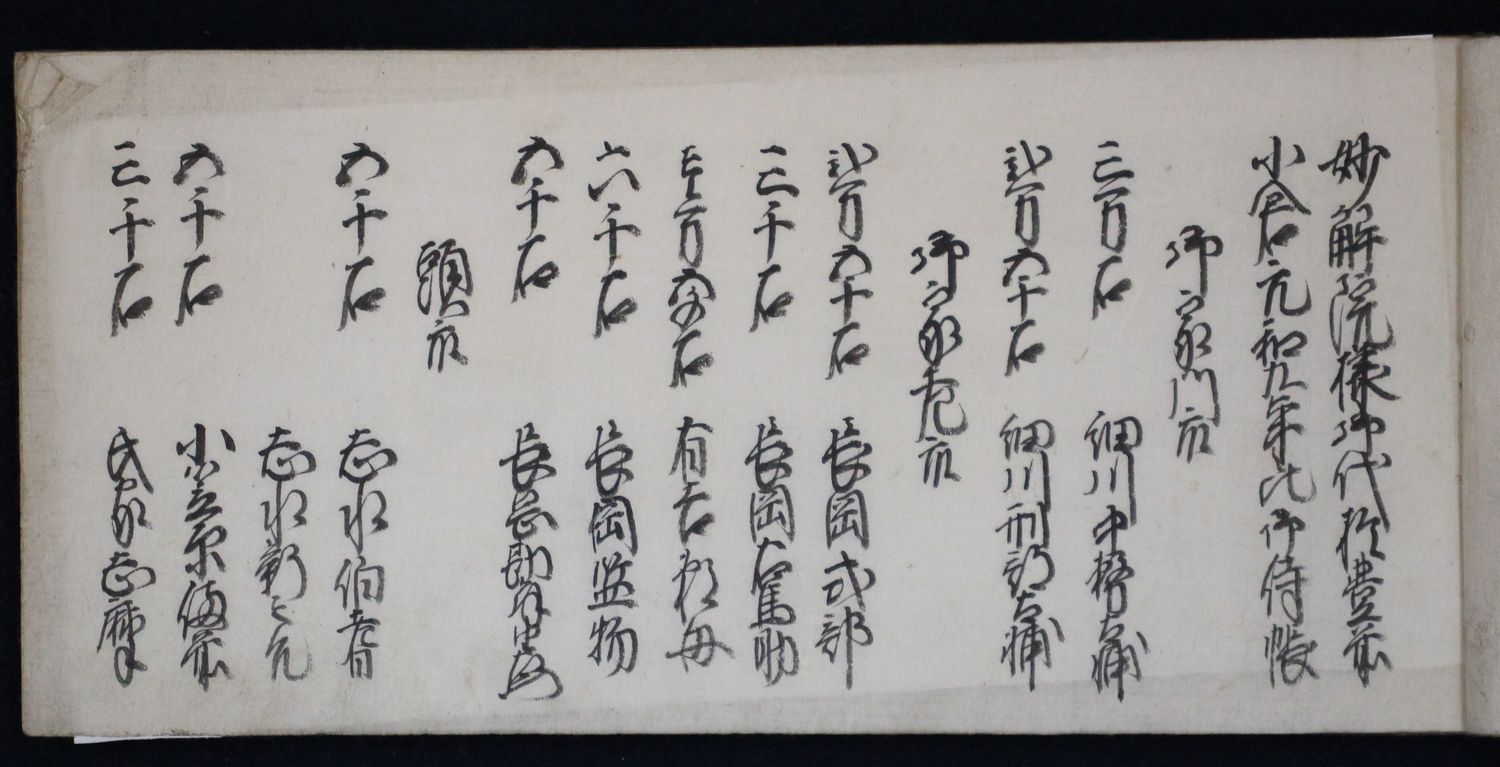 妙解院様御代於豊前
小倉元和九年比御侍帳
御家門衆
三万石 細川中務大輔
弐万五千石 細川刑部大輔
御家老衆
弐万五千石 長岡式部
三千石 長岡右馬助
壱万五千石 有吉頼母
六千石 長岡監物
五千石 長岡勘解由
頭衆
五千石 志水伯耆
志水新之允
五千石 小笠原備前
三千石 氏家志摩